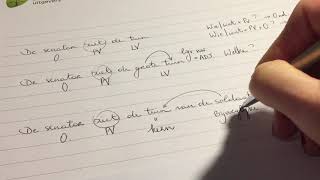 uitgevers
Wie/wat + PV? → Ond
Wie/wat + PV + O?
De senator ziet de tuin
O. PV LV
De senator ziet de grote tuin
O. PV LV
+ADJ. Welke?
De senator ziet de tuin van de soldaat
O. PV kern